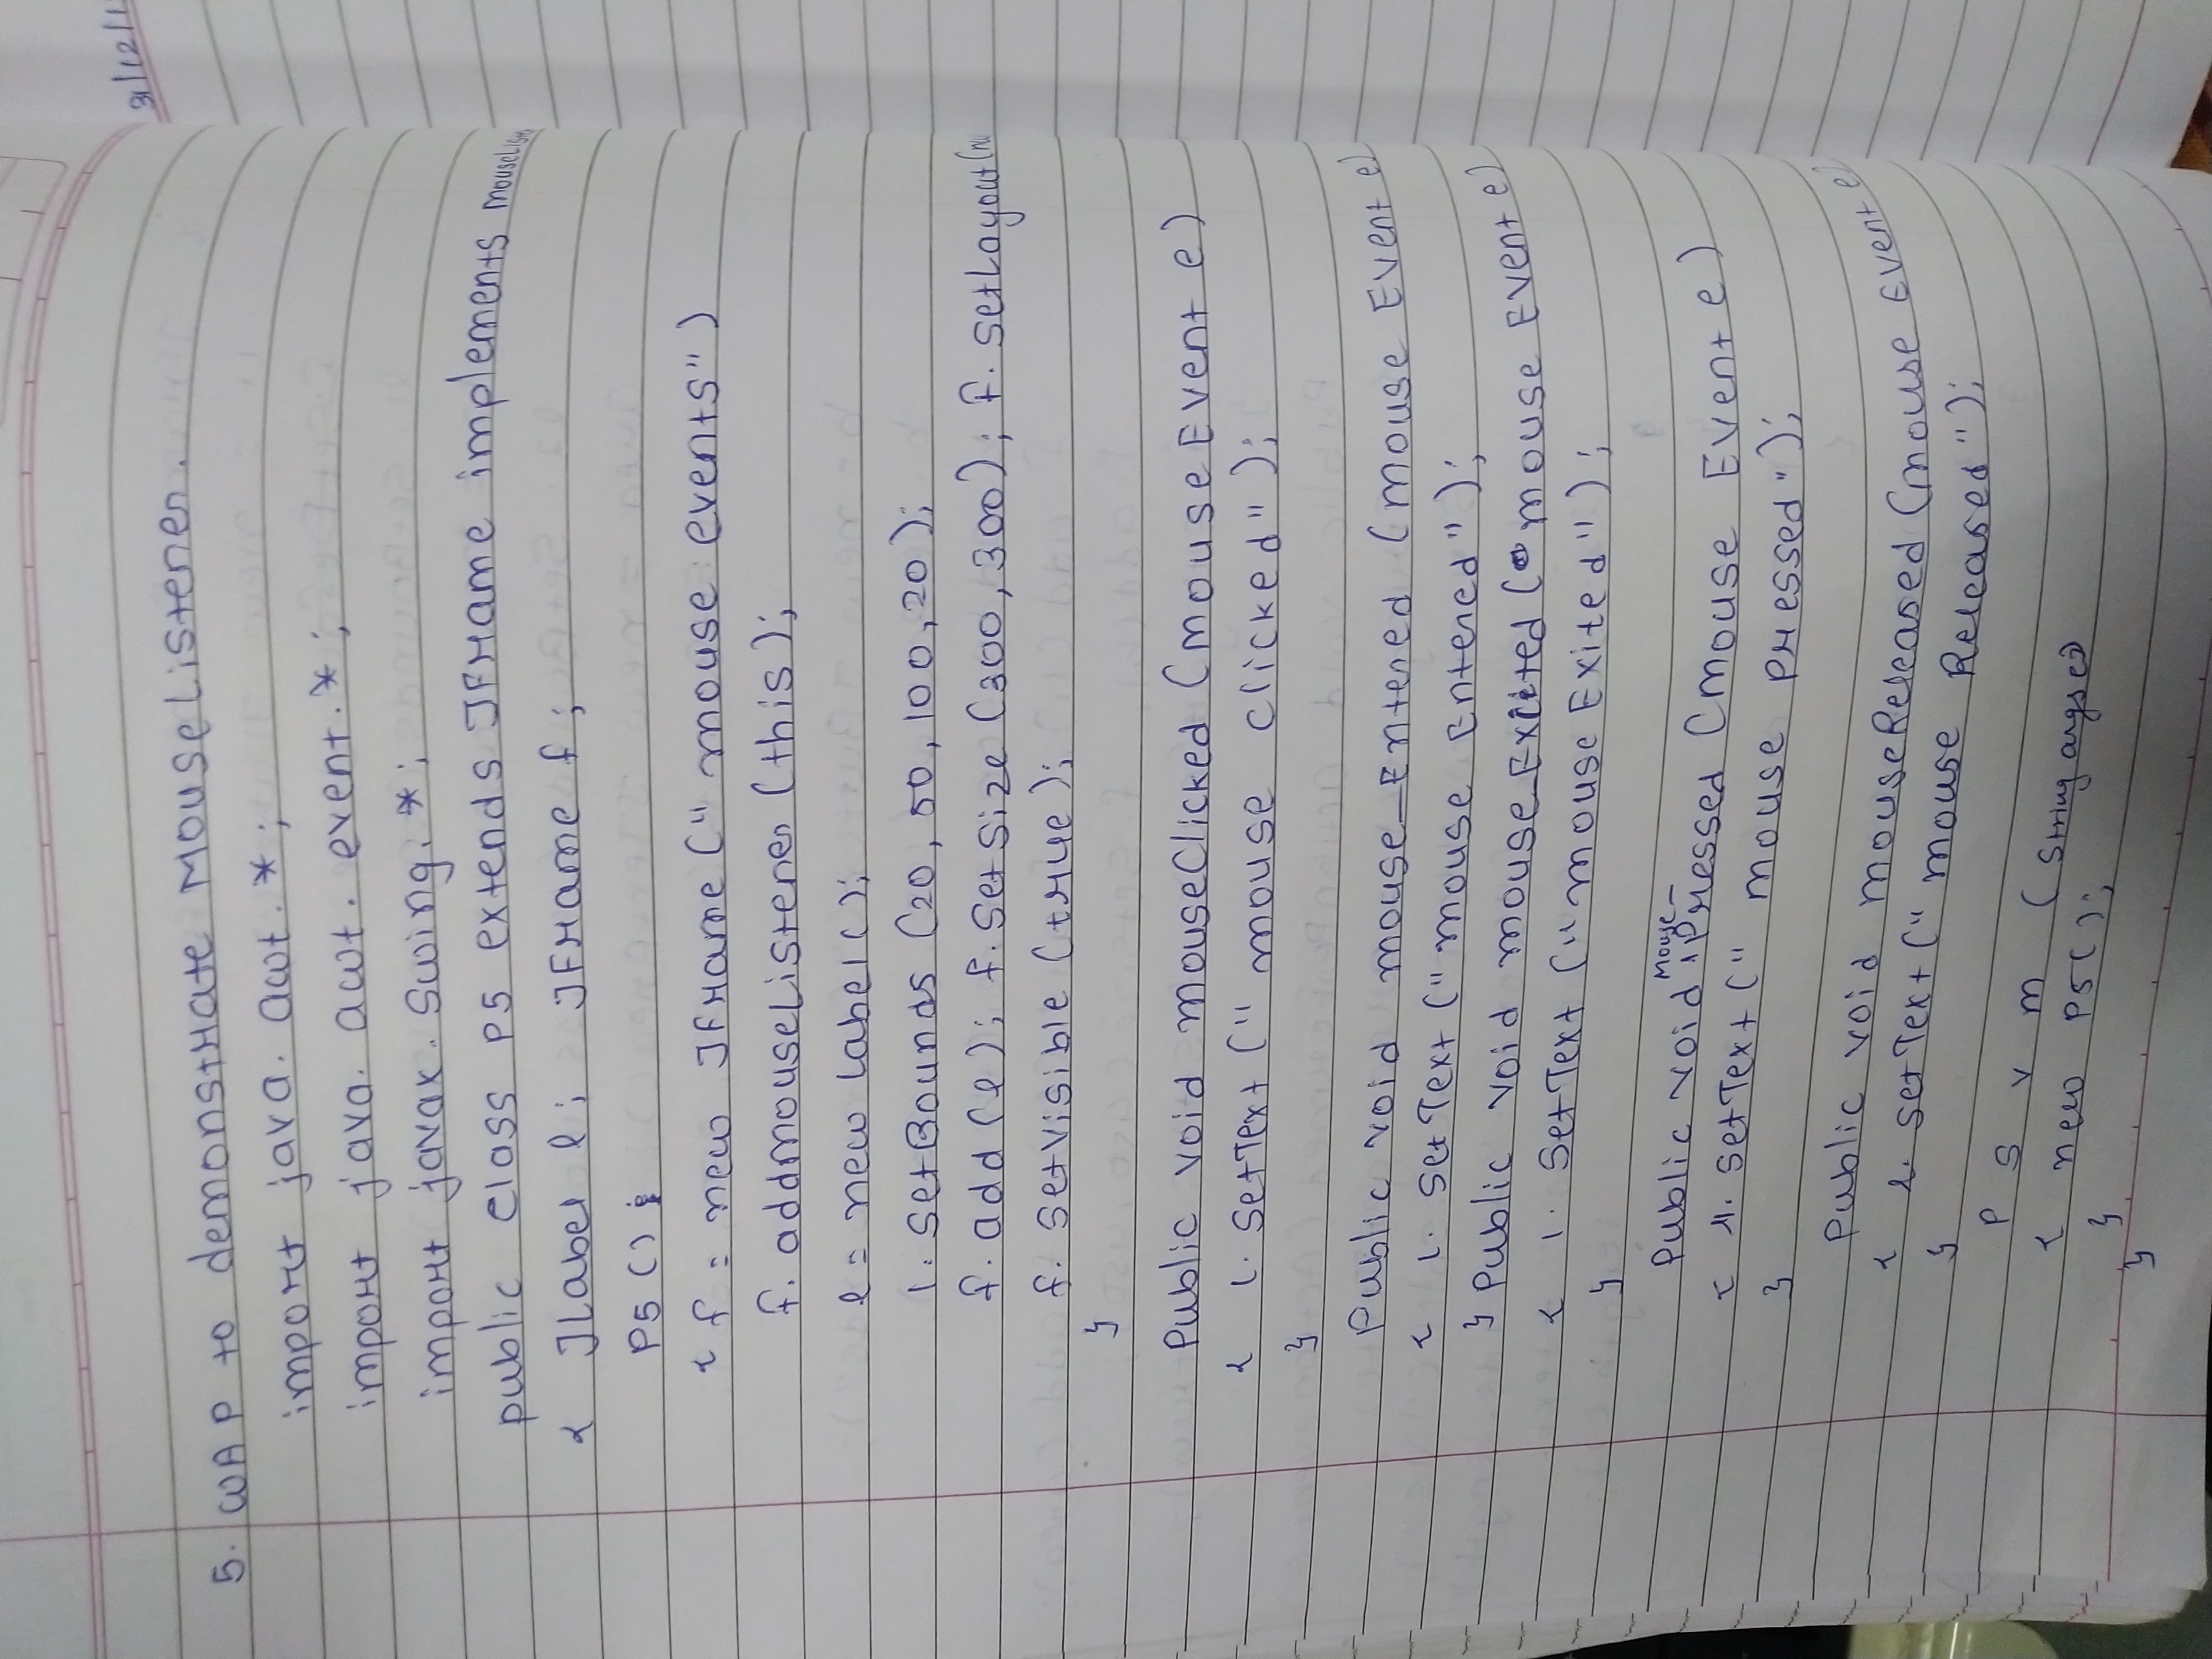 31/12/1
5. WAP to demonstrate MouseListener.
import java. awt. *;
import java. awt. event. *;
import javax. Swing. *;
public class P5 extends JFrame implements MouseLis
{ JLabel l; JFrame f;
P5 ()
{ f = new JFrame (" mouse events")
f. addmouseListener (this);
l = new Label();
l. SetBounds (20, 50, 100, 20);
f. add (l); f. Set Size (300, 300); f. SetLayout(nu
f. SetVisible (true);
}
Public void mouseClicked (mouseEvent e)
{ l. SetText (" mouse clicked" );
}
Public void mouse_Entered (mouse Event e)
{ l. Set Text (" mouse Entered" );
} Public void mouse_Exited ( mouse Event e)
{ l. SetText (" mouse Exited" );
}
Public void Mouse_Pressed (mouse Event e)
{ l. SetText (" mouse pressed" );
}
Public void mouseReleased (mouse Event e)
{ l. setText (" mouse Released" );
}
P S v m ( String args[])
{ new P5( );
}
}